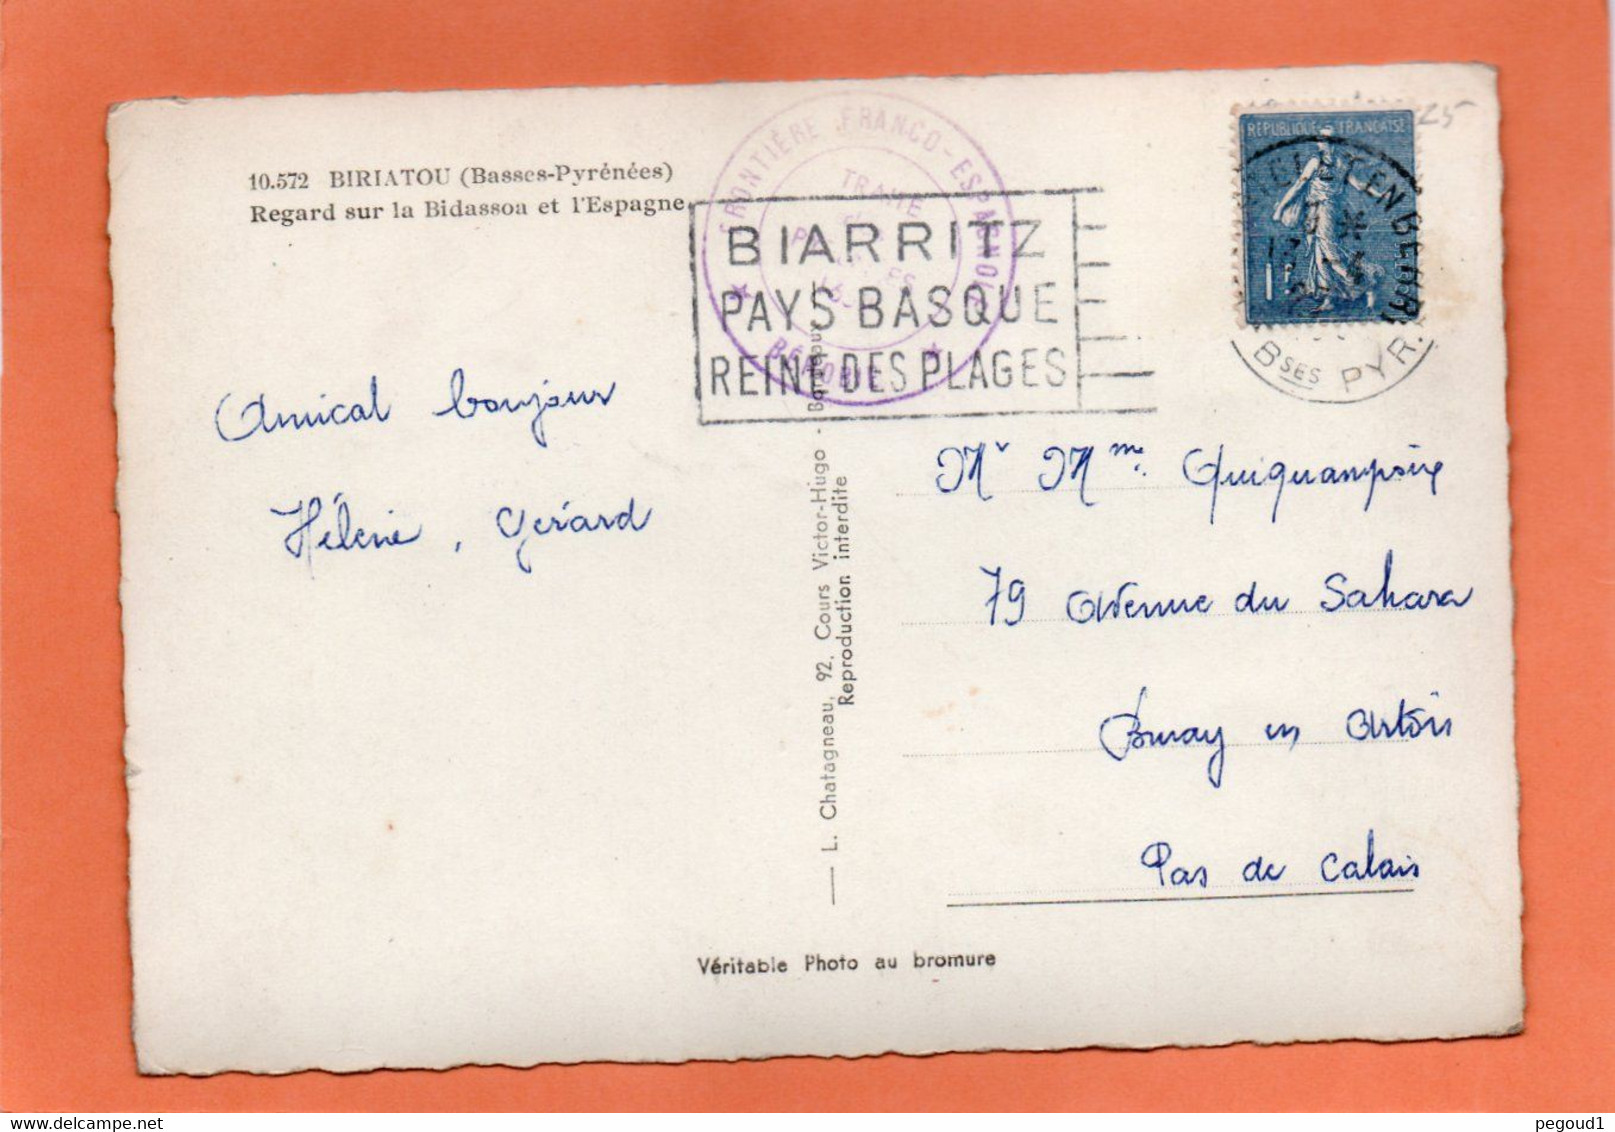 10.572 BIRIATOU (Basses-Pyrénées)
Regard sur la Bidassoa et l'Espagne
FRONTIÈRE FRANCO-ESPAGNOLE
TRAITÉ
BÉHOBIE
BIARRITZ
PAYS BASQUE
REINE DES PLAGES
RÉPUBLIQUE FRANÇAISE
1F
BSES PYR.
25
Amical bonjour
Hélène, Gérard
L. Chatagneau, 92. Cours Victor-Hugo - Bordeaux
Reproduction interdite
Mr Mme Quiquampoix
79 Avenue du Sahara
Bruay en Artois
Pas de Calais
Véritable Photo au bromure
delcampe.net
pegoud1